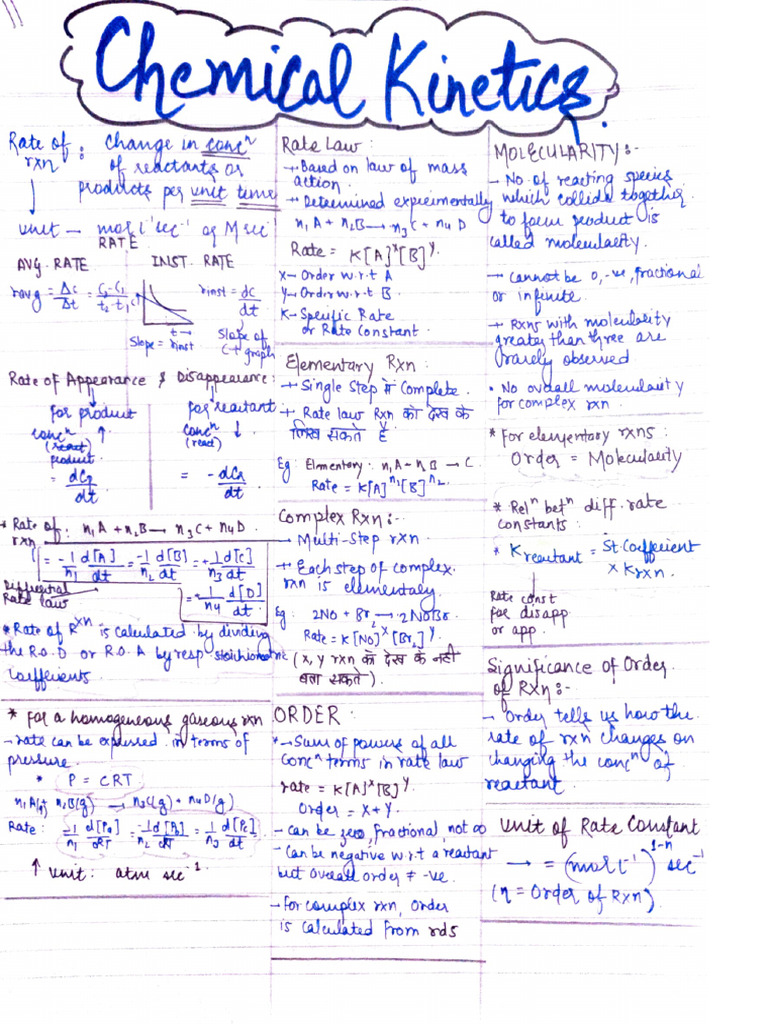 Chemical Kinetics.
Rate of rxn : change in concⁿ
of reactants or
products per unit time
unit — mol l⁻¹ sec⁻¹ or M sec⁻¹
RATE
AVG. RATE
INST. RATE
ravg = Δc/Δt = (C₂-C₁)/(t₂-t₁)
c
t →
Slope = rinst
rinst = dc/dt
Slope of
C-t graph
Rate of Appearance & Disappearance:
for product
concⁿ ↑
(react)
product.
= dCp/dt
for reactant
concⁿ ↓
(react)
= -dCr/dt
* Rate of rxn : n₁A + n₂B → n₃C + n₄D.
= -1/n₁ d[A]/dt = -1/n₂ d[B]/dt = +1/n₃ d[C]/dt
= +1/n₄ d[D]/dt
Differential
Rate law
* Rate of Rxn is calculated by dividing
the R.O.D or R.O.A by resp. stoichiometric
coefficients.
* For a homogeneous gaseous rxn
- rate can be expressed in terms of
pressure.
* P = CRT
n₁A(g) + n₂B(g) → n₃C(g) + n₄D(g)
Rate: -1/n₁ d[Pa]/dt = -1/n₂ d[Pb]/dt = 1/n₃ d[Pc]/dt
↑ Unit: atm sec⁻¹
Rate Law :
→ Based on law of mass
action.
→ Determined experimentally
n₁A + n₂B → n₃C + n₄D
Rate = K[A]ˣ[B]ʸ.
X - Order w.r.t A
Y - Order w.r.t B.
K - Specific Rate
or Rate Constant.
Elementary Rxn :
→ Single Step में Complete.
→ Rate law Rxn को देख के
लिख सकते है
Eg: Elmentary: n₁A + n₂B → C.
Rate = K[A]ⁿ¹[B]ⁿ².
Complex Rxn :-
→ Multi-Step rxn.
→ Each step of complex.
rxn is elementary.
Eg: 2NO + Br₂ → 2NOBr.
Rate = K[NO]ˣ[Br₂]ʸ.
(x, y rxn को देख के नही
बता सकते).
ORDER :
* → Sum of powers of all
concⁿ terms in rate law
rate = K[A]ˣ[B]ʸ.
Order = X + Y.
- can be zero, fractional, not ∞
- Can be negative w.r.t a reactant
but overall order ≠ -ve.
- For complex rxn, order
is calculated from rds
MOLECULARITY :-
- No. of reacting species
which collide together
to form product is
called molecularity.
→ cannot be 0, -ve, fractional
or infinite.
→ Rxns with molecularity
greater than three are
rarely observed
• No overall molecularity
for complex rxn.
* For elementary rxns :
Order = Molecularity
* Relⁿ betⁿ diff. rate
constants :
* Kreactant = St. Coefficient
× Krxn.
Rate const
for disapp.
or app.
Significance of Order
of Rxn :-
- Order tells us how the
rate of rxn changes on
changing the concⁿ of
reactant.
Unit of Rate Constant
→ = (mol l⁻¹)¹⁻ⁿ sec⁻¹
(n = Order of Rxn).